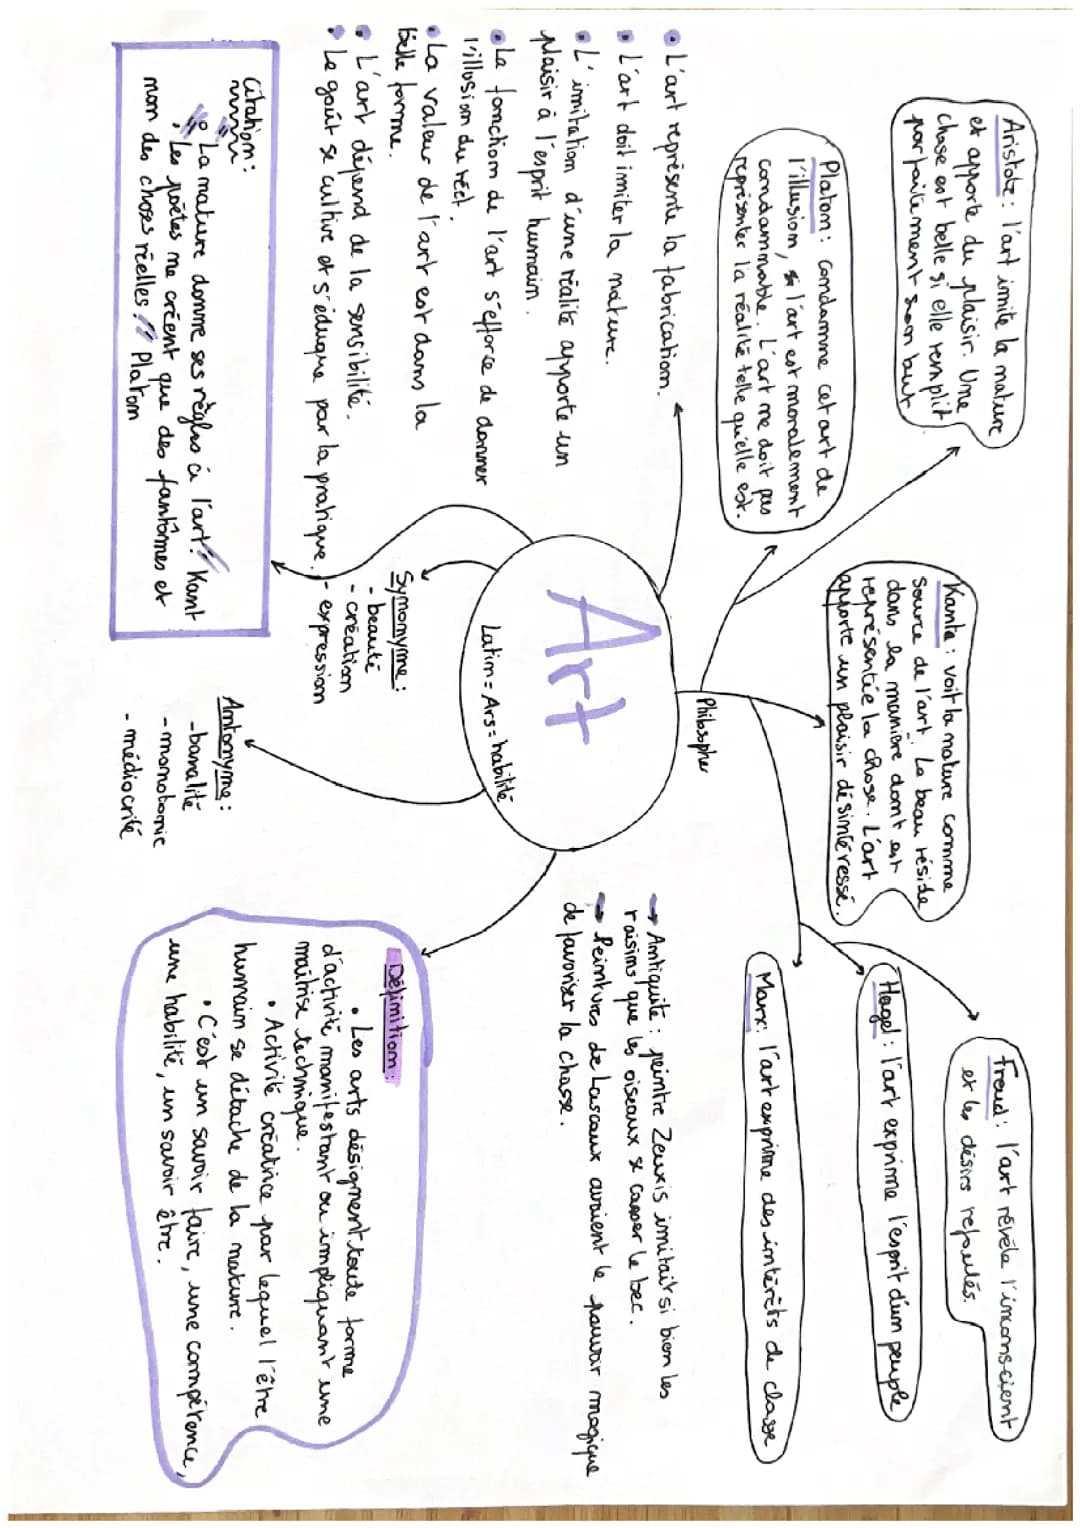 Aristote : l'art imite la nature
et apporte du plaisir. Une
chose est belle si elle remplit
parfaitement son but
Platon : condamne cet art de
l'illusion, l'art est moralement
condamnable. L'art ne doit pas
représenter la réalité telle qu'elle est.
Kante : voit la nature comme
source de l'art. Le beau réside
dans la manière dont est
représentée la chose. L'art
apporte un plaisir désintéressé.
Freud : l'art révèle l'inconscient
et les désirs refoulés.
Hegel : l'art exprime l'esprit d'un peuple
Marx : l'art exprime des intérêts de classe
Philosophe
• L'art représente la fabrication.
• L'art doit imiter la nature.
• L'imitation d'une réalité apporte un
plaisir à l'esprit humain.
• La fonction de l'art s'efforce de donner
l'illusion du réel.
• La valeur de l'art est dans la
belle forme.
• L'art dépend de la sensibilité.
• Le goût se cultive et s'éduque par la pratique.
→ Antiquité : peintre Zeuxis imitait si bien les
raisins que les oiseaux se casser le bec.
→ Peintures de Lascaux avaient le pouvoir magique
de favoriser la chasse.
Art
Latin = Ars = habilité
Synonyme :
- beauté
- création
- expression
Antonyme :
- banalité
- monotonie
- médiocrité
Définition :
• Les arts désignent toute forme
d'activité manifestant ou impliquant une
maîtrise technique.
• Activité créatrice par lequel l'être
humain se détache de la nature.
• C'est un savoir faire, une compétence,
une habilité, un savoir être.
Citation :
"La nature donne ses règles à l'art." Kant
"Les poètes ne créent que des fantômes et
non des choses réelles." Platon